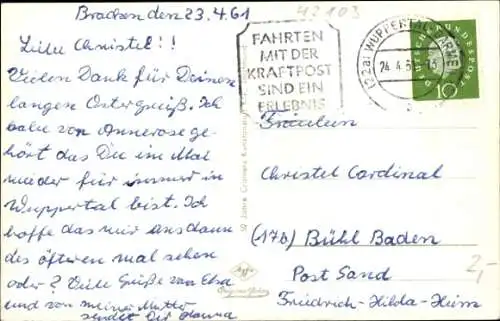 Bracken den 23.4.61
42103
Liebe Christel!!
Vielen Dank für Deinen
langen Ostergruß. Ich
habe von Annerose ge-
hört das Du im Mai
wieder für immer in
Wuppertal bist. Ich
hoffe das wir uns dann
des öfteren mal sehen
oder? Viele Grüße von Elsa
und von meine Mutter
sendet Dir
FAHRTEN
MIT DER
KRAFTPOST
SIND EIN
ERLEBNIS
(22a) WUPPERTAL-BARMEN
24.4.61
DEUTSCHE BUNDESPOST
10
Fräulein
Christel Cardinal
(17b) Bühl Baden
Post Sand
Friedrich-Hilda-Heim
2,-
Agfa